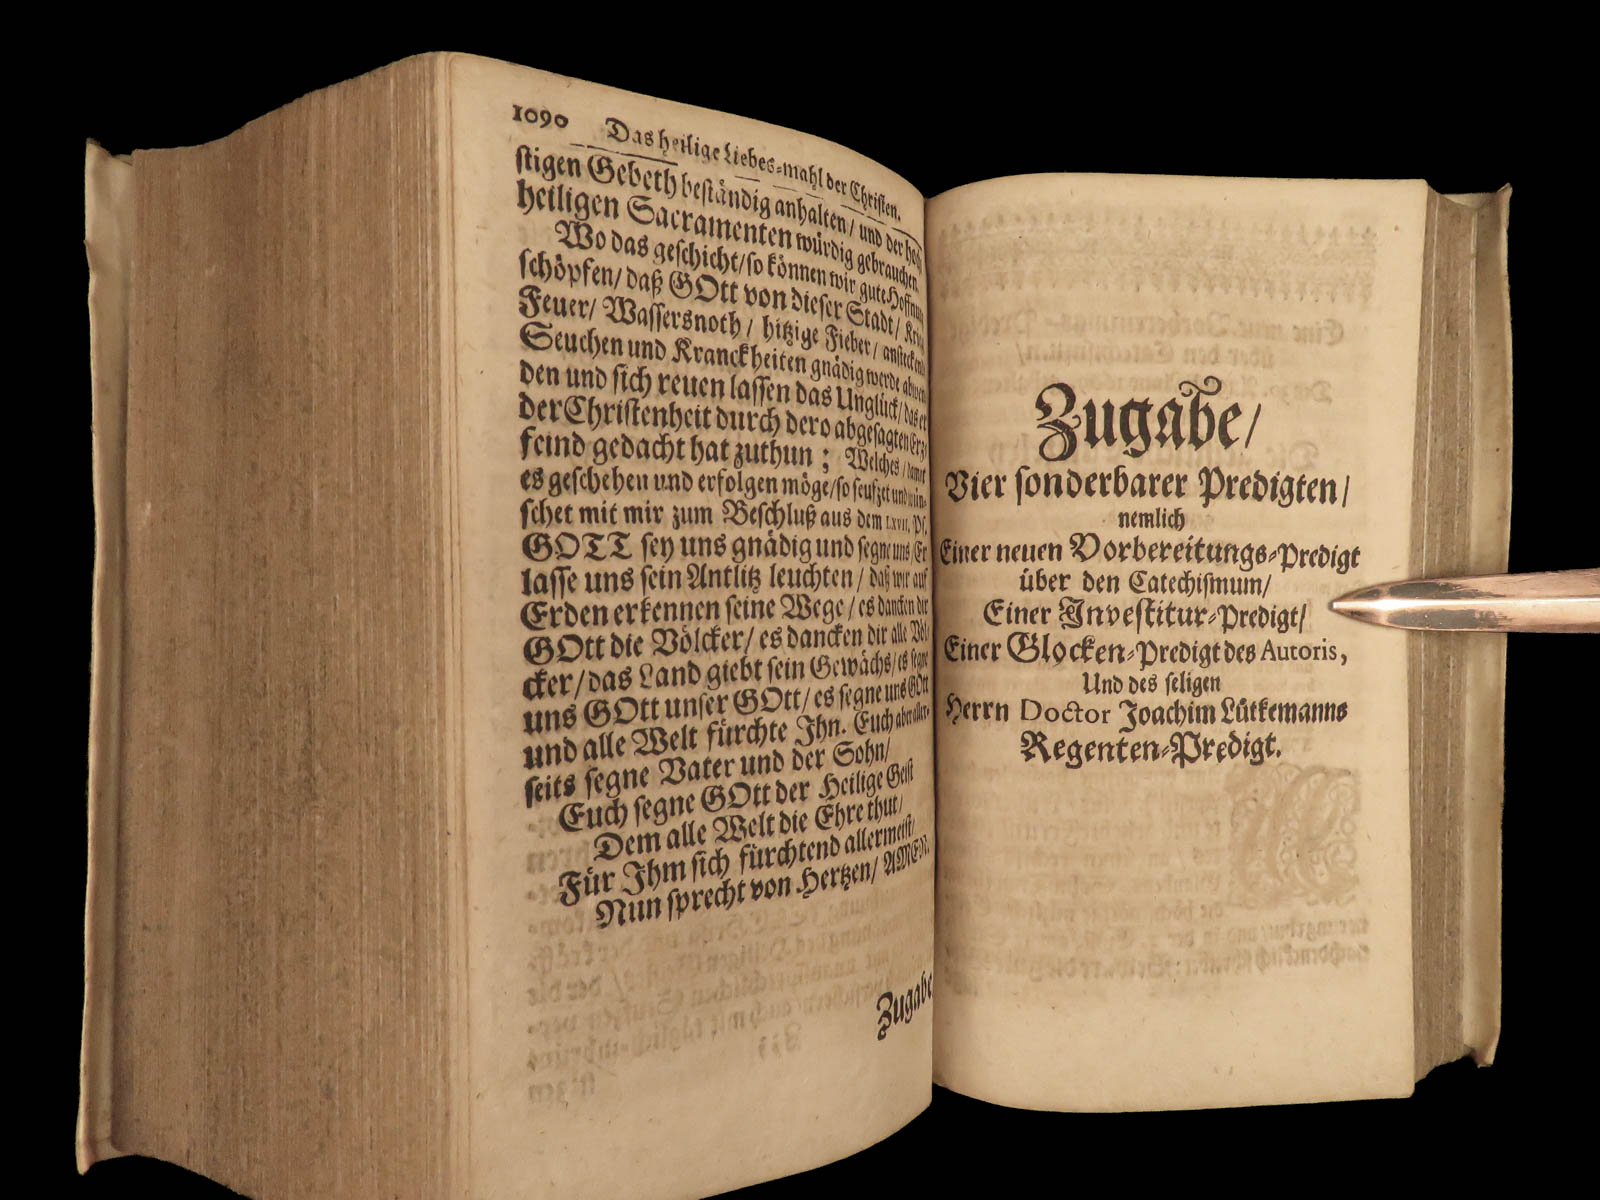 1090 Das heilige Liebes-mahl der Christen.
stigen Gebeth beständig anhalten/ und der
heiligen Sacramenten würdig gebrauchen.
Wo das geschicht/so können wir gute Hoffnung
schöpfen/ daß GOtt von dieser Stadt/
Feuer/ Wassersnoth/ hitzige Fieber/
Seuchen und Kranckheiten gnädig werde
den und sich reuen lassen das Unglück/ das er
der Christenheit durch dero abgesagten
feind gedacht hat zuthun; Welches/ damit
es geschehen und erfolgen möge/so seufzet und wün-
schet mit mir zum Beschluß aus dem LXVII. Ps.
GOTT sey uns gnädig und segne uns/ Er
lasse uns sein Antlitz leuchten/ daß wir auf
Erden erkennen seine Wege/ es dancken dir
GOtt die Völcker/ es dancken dir alle Völ-
cker/das Land giebt sein Gewächs/es segne
uns GOtt unser GOtt/ es segne uns GOtt
und alle Welt fürchte Ihn. Euch aber aller-
seits segne Vater und der Sohn/
Euch segne GOtt der Heilige Geist
Dem alle Welt die Ehre thut/
Für Ihm sich fürchtend allermeist/
Nun sprecht von Hertzen/ AMEN.
Zugabe
Zugabe/
Vier sonderbarer Predigten/
nemlich
Einer neuen Vorbereitungs-Predigt
über den Catechismum/
Einer Investitur-Predigt/
Einer Glocken-Predigt des Autoris,
Und des seligen
Herrn Doctor Joachim Lütkemanns
Regenten-Predigt.